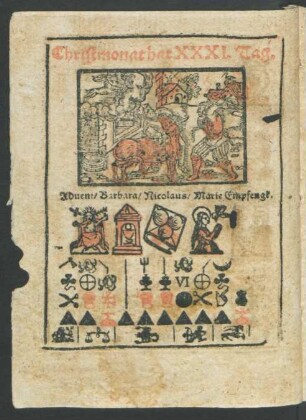 Christmonat hat XXXI. Tag.
Advent/ Barbara/ Nicolaus/ Marie Empfengk.
VI